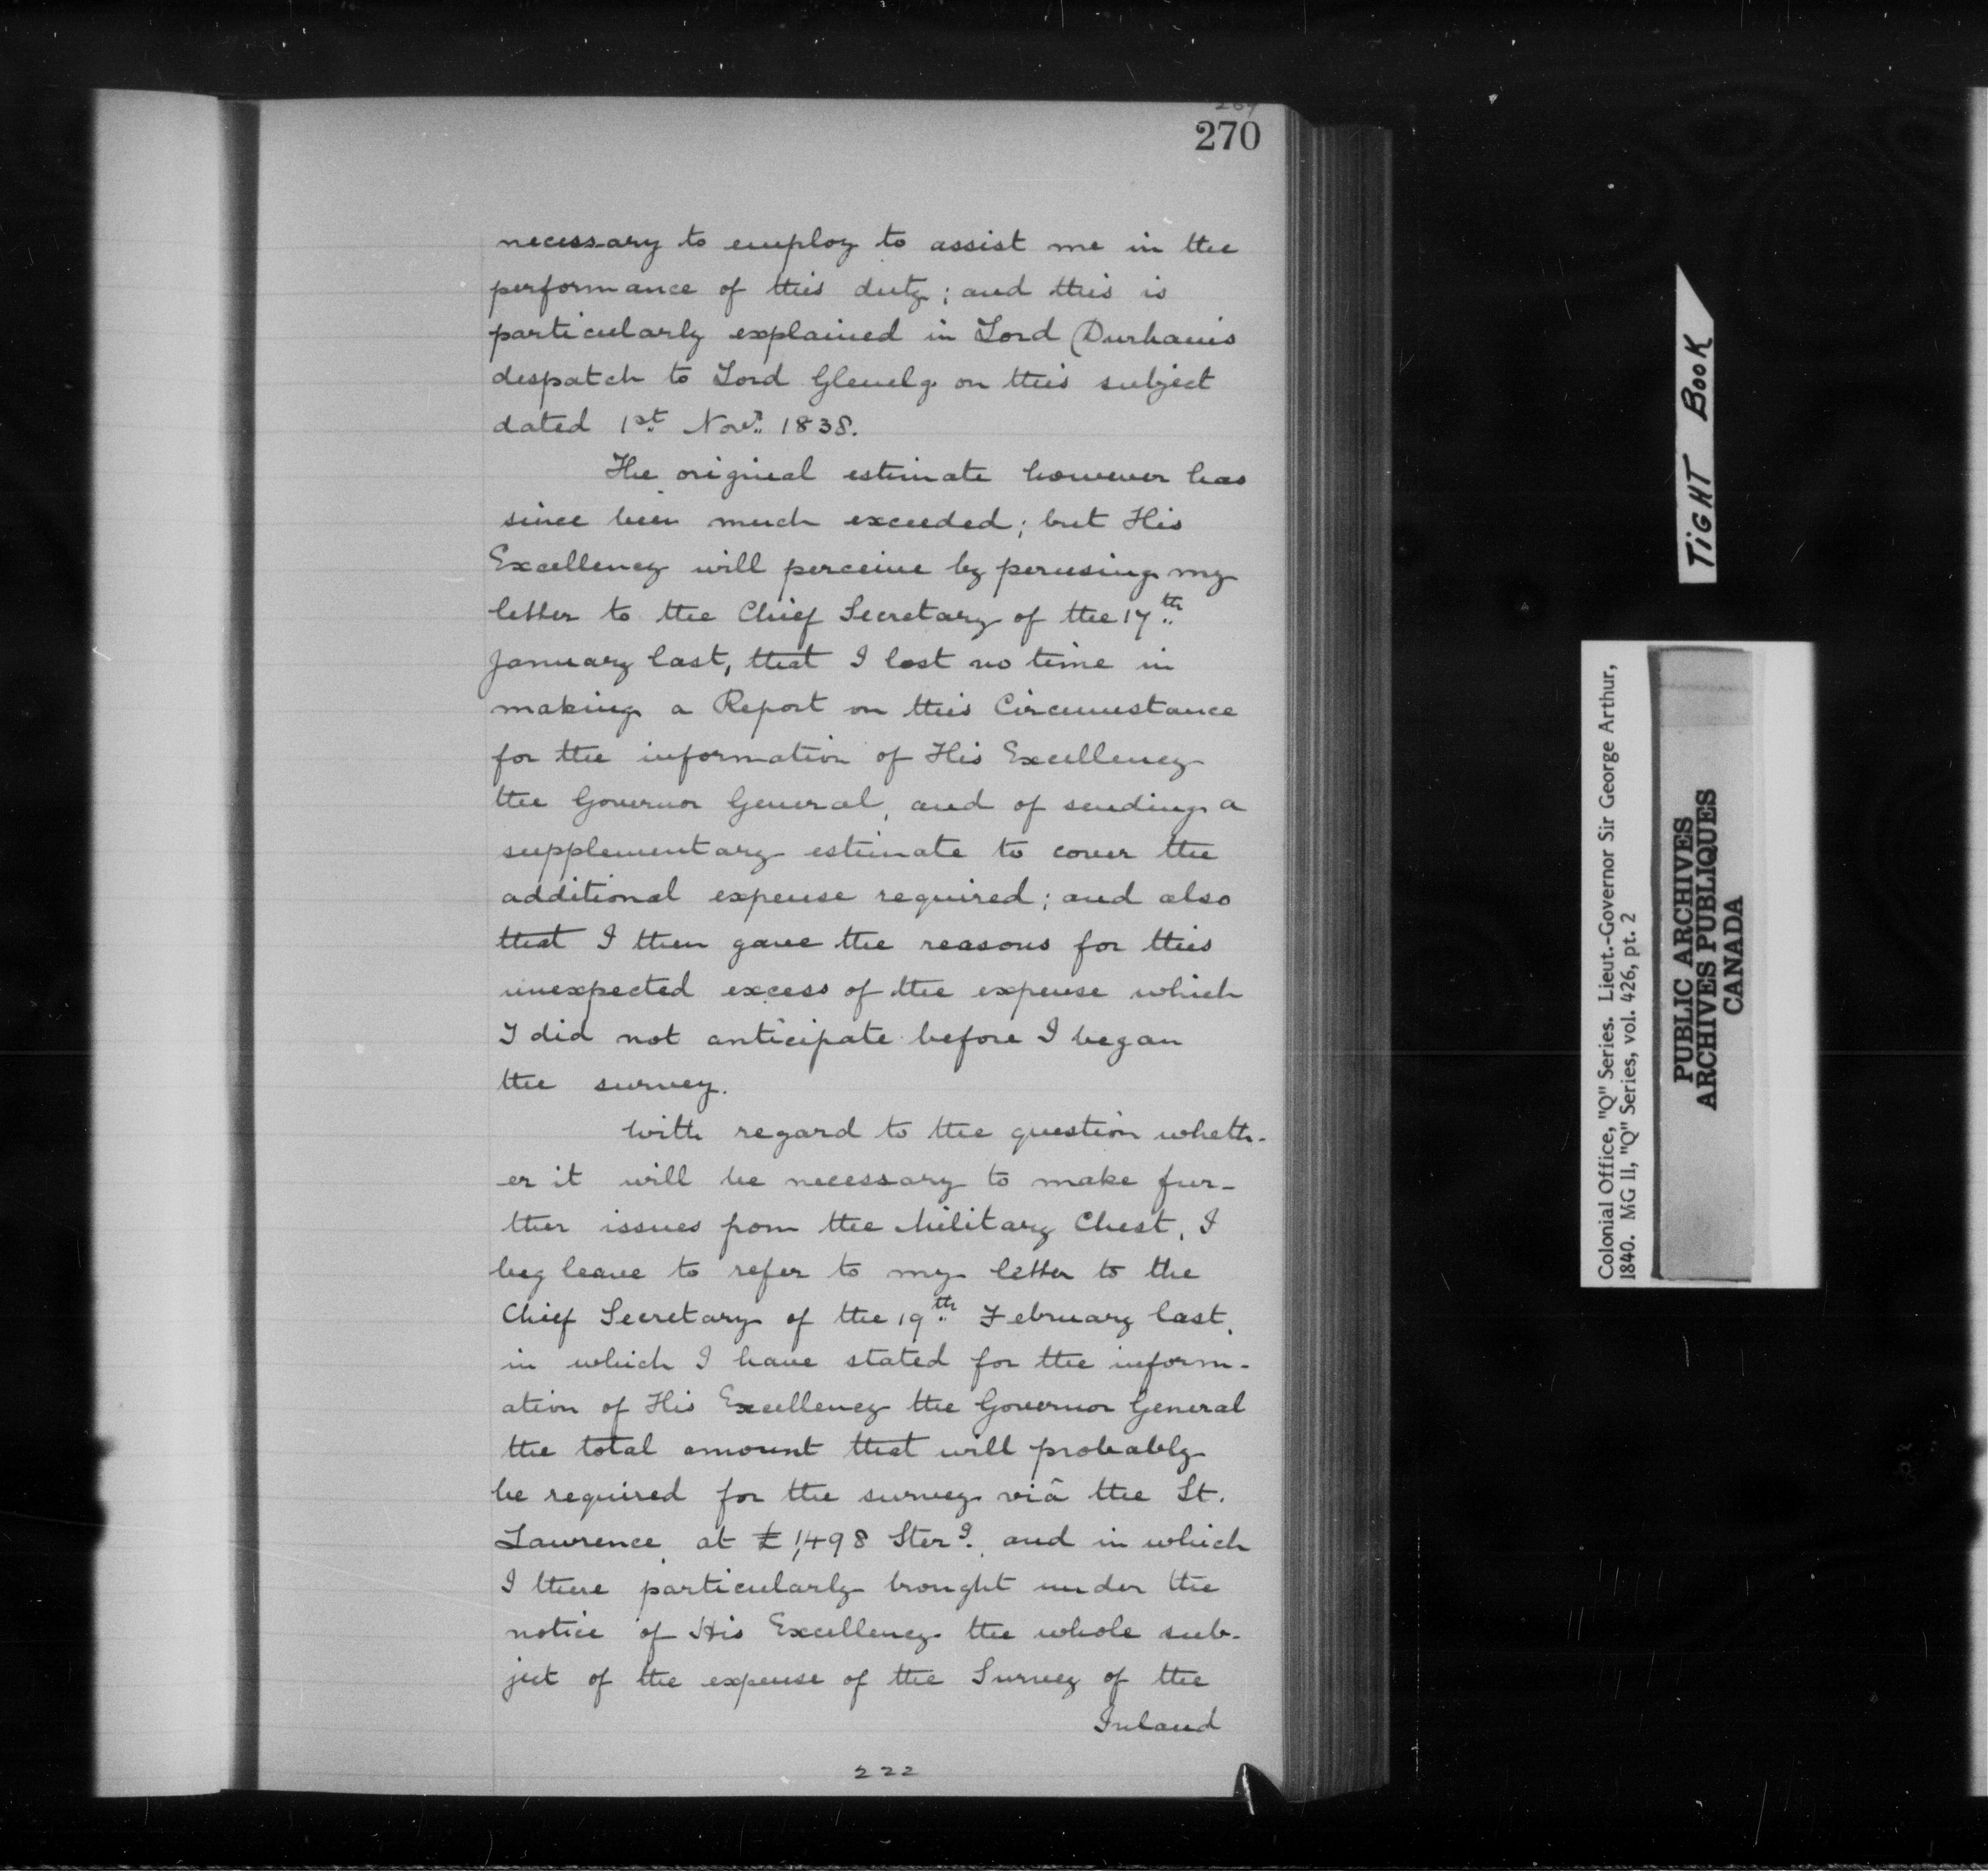 269
270
necessary to employ to assist me in the
performance of this duty; and this is
particularly explained in Lord Durham's
despatch to Lord Glenelg on this subject
dated 1st Novr. 1838.
The original estimate however has
since been much exceeded; but His
Excellency will perceive by perusing my
letter to the Chief Secretary of the 17th
January last, that I lost no time in
making a Report on this Circumstance
for the information of His Excellency
the Governor General, and of sending a
supplementary estimate to cover the
additional expense required; and also
that I then gave the reasons for this
unexpected excess of the expense which
I did not anticipate before I began
the survey.
With regard to the question wheth-
er it will be necessary to make fur-
ther issues from the Military Chest, I
beg leave to refer to my letter to the
Chief Secretary of the 19th February last,
in which I have stated for the inform-
ation of His Excellency the Governor General
the total amount that will probably
be required for the survey viâ the St.
Lawrence, at £1,498 Sterg. and in which
I there particularly brought under the
notice of His Excellency the whole sub-
ject of the expense of the Survey of the
Inland
222
TIGHT BOOK
Colonial Office, "Q" Series. Lieut.-Governor Sir George Arthur,
1840. MG 11, "Q" Series, vol. 426, pt. 2
PUBLIC ARCHIVES
ARCHIVES PUBLIQUES
CANADA